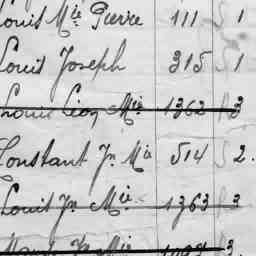 Louis Mie Pierre 111 S 1
Louis Joseph 315 S 1
Louis Léon Mie 1362 R 3
Constant Jn Mie 514 S 2.
Louis Jn Mie 1363 R 3
Mie 3.